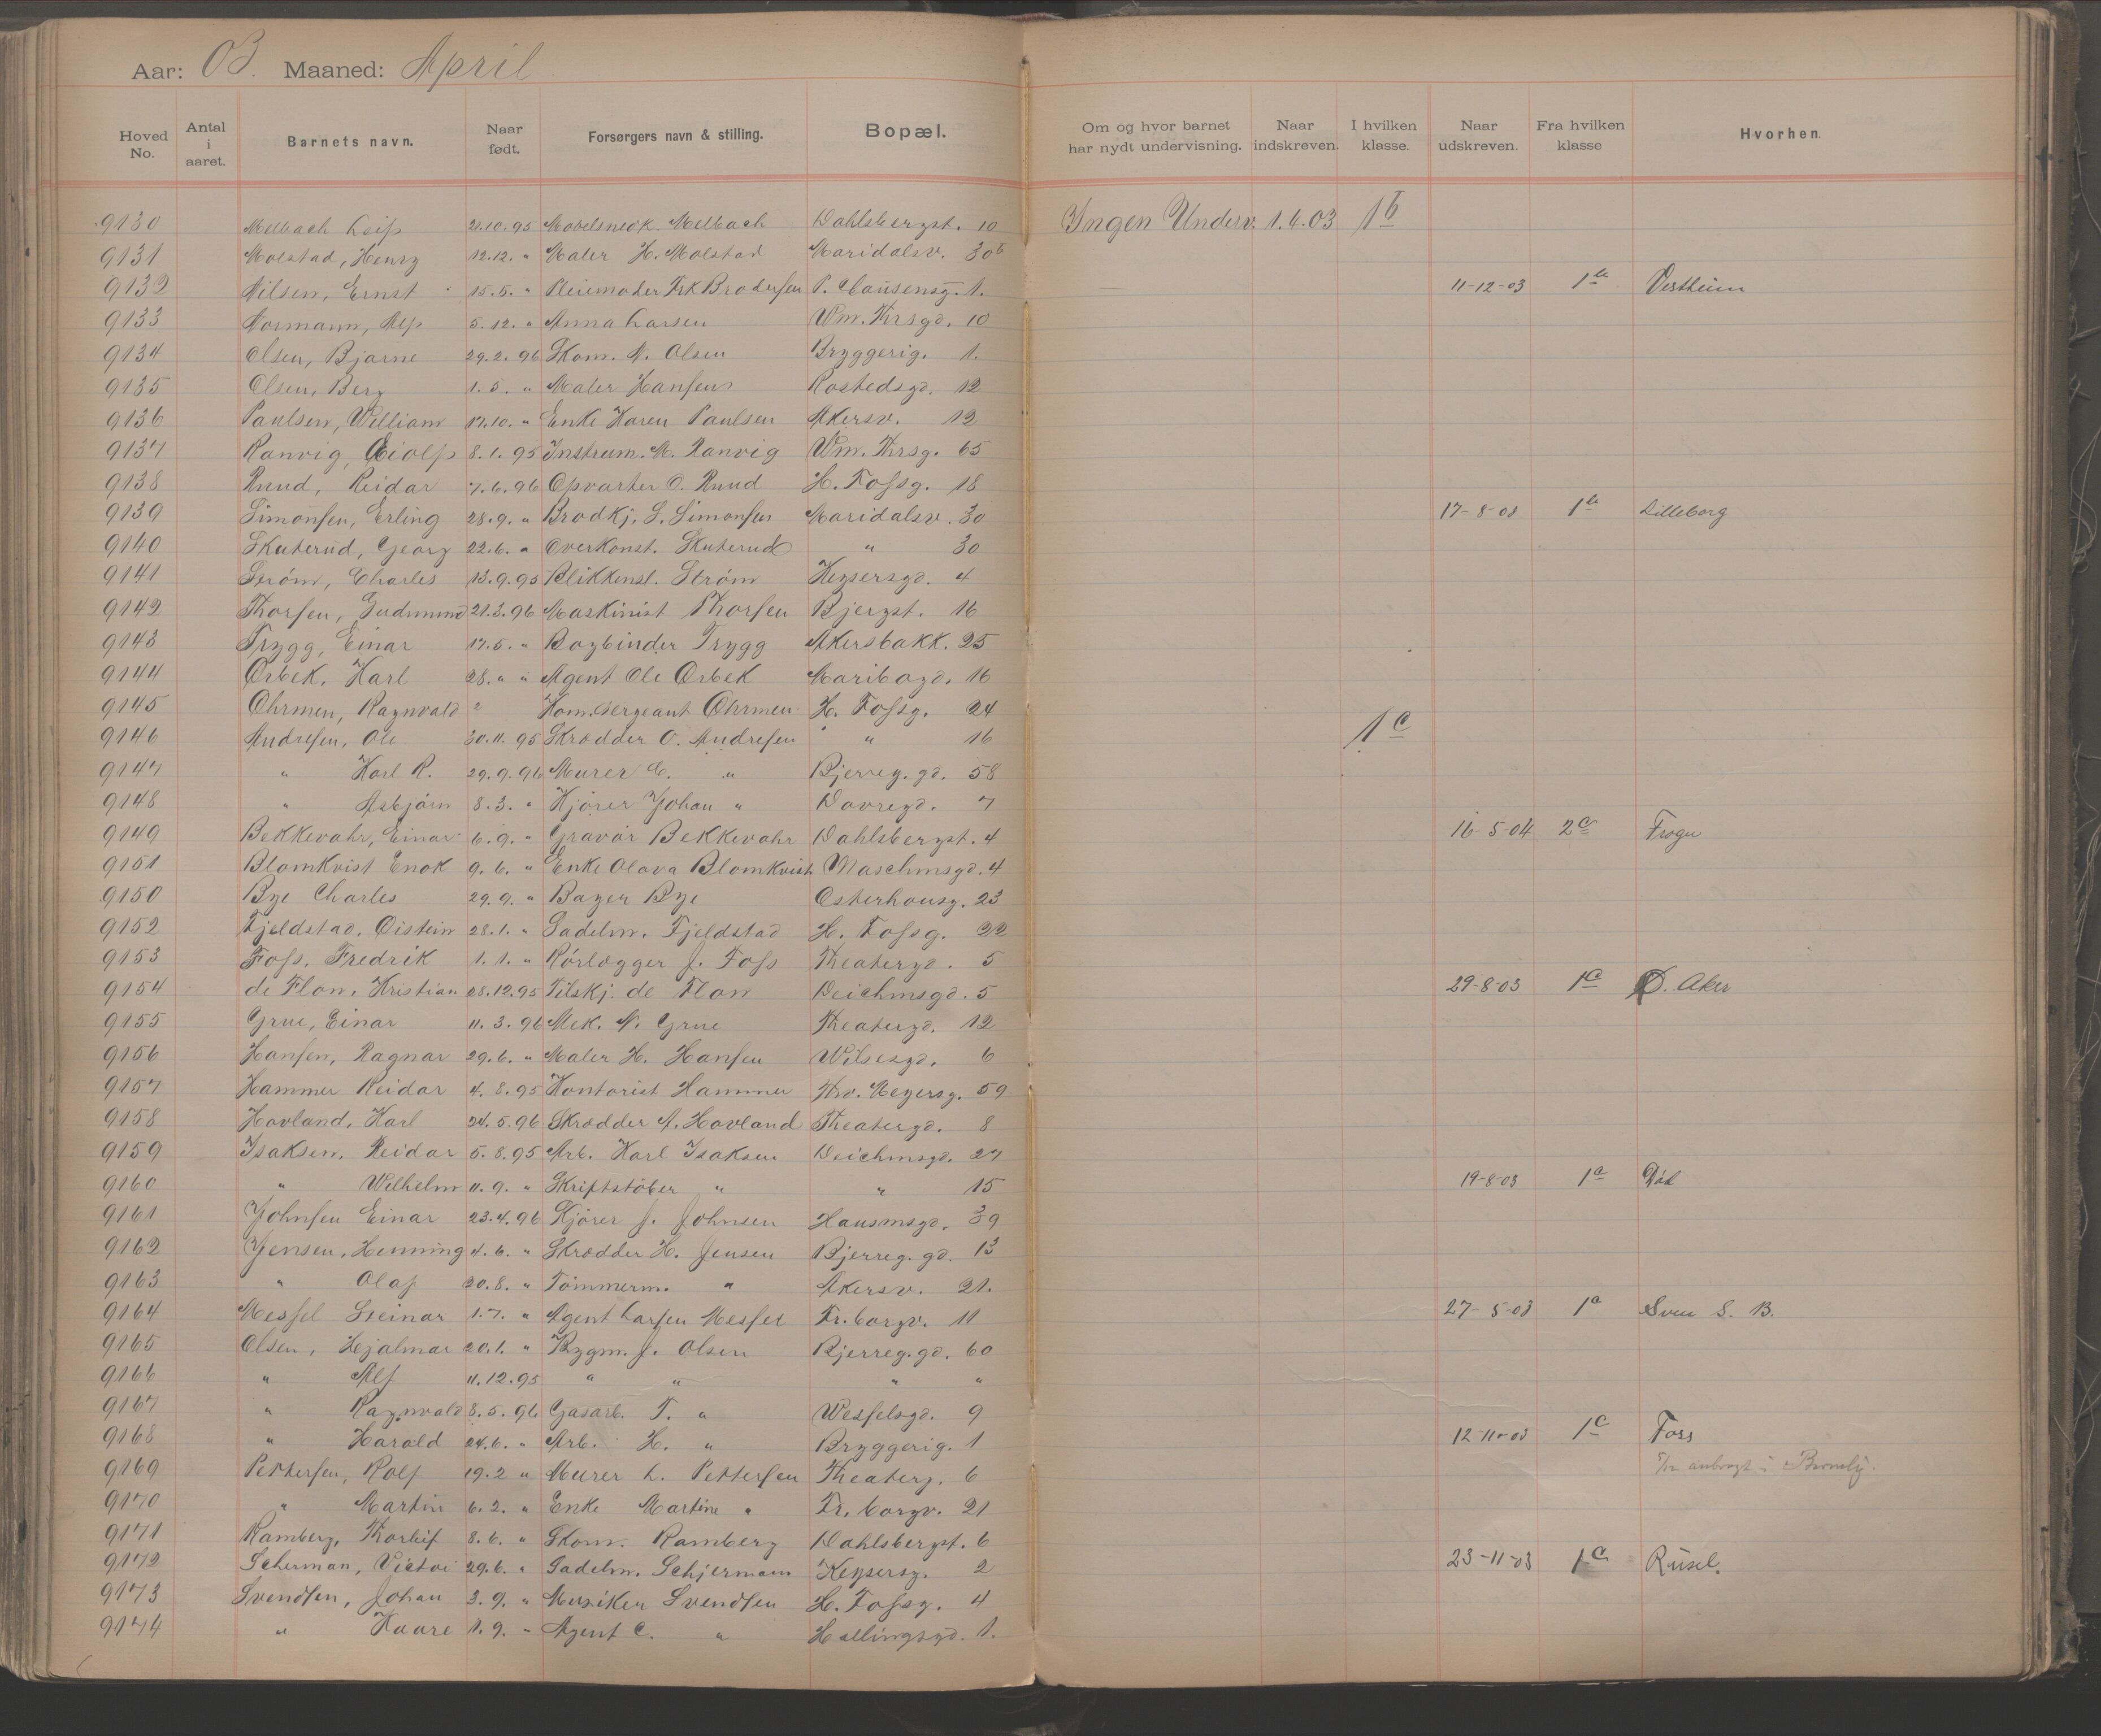 Aar: 03. Maaned: April
Hoved No. Antal i aaret. Barnets navn. Naar født. Forsørgers navn & stilling. Bopæl. Om og hvor barnet har nydt undervisning. Naar indskreven. I hvilken klasse. Naar udskreven. Fra hvilken klasse Hvorhen.
9130 Melbach Leif 21.10.95 Møbelsnedk. Melbach Dahlsbergst. 10 Ingen Underv. 1.4.03 1b
9131 Molstad, Henry 12.12. " Maler H. Molstad Maridalsv. 30b
9132 Nilsen, Ernst 15.5. " Pleiemoder Frk Brodersen P. Clausensg. 1. 11-12-03 1b Vestheim
9133 Normann, Alf 5.12. " Anna Larsen Wm. Thrsgd. 10
9134 Olsen, Bjarne 29.2.96 Skom. N. Olsen Bryggerig. 1.
9135 Olsen, Berg 1.5. " Maler Hansen Rostedsgd. 12
9136 Paulsen, William 17.10. " Enke Karen Paulsen Akersv. 12
9137 Ranvig, Eiolf 8.1.95 Instrum. M. Ranvig Wm. Thrsg. 65
9138 Ruud, Reidar 7.6.96 Opvarter O. Ruud H. Fossg. 18
9139 Simonsen, Erling 28.9. " Brødkj. S. Simonsen Maridalsv. 30 17-8-03 1b Lilleborg
9140 Skuterud, Georg 22.6. " Overkonst. Skuterud " 30
9141 Strøm, Charles 13.9.95 Blikkensl. Strøm Keysersgd. 4
9142 Thorsen, Gudmund 21.3.96 Maskinist Thorsen Bjergst. 16
9143 Trygg, Einar 17.5. " Bogbinder Trygg Akersbakk. 25
9144 Ørbek, Karl 28. " " Agent Ole Ørbek Maribogd. 16
9145 Øhrmen, Ragnvald " Kom.sergeant Øhrmen H. Fossg. 24
9146 Andresen, Ole 30.11.95 Skrædder O. Andresen " " 16 1c
9147 " Karl R. 29.9.96 Murer C. " Bjerreg. gd. 58
9148 " Asbjørn 8.3. " Kjører Johan " Dovregd. 7
9149 Bekkevahr, Einar 6.9. " Gravør Bekkevahr Dahlsbergst. 4 16-5-04 2c Frogn
9151 Blomkvist Enok 9.6. " Enke Olava Blomkvist Maschmsgd. 4
9150 Bye Charles 29.9. " Bager Bye Osterhausg. 23
9152 Fjeldstad, Øistein 28.1. " Sadelm. Fjeldstad H. Fossg. 22
9153 Foss, Fredrik 1.1. " Rørlægger J. Foss Theatergd. 5
9154 de Flon, Kristian 28.12.95 Tilskj. de Flon Deichmsgd. 5 29-8-03 1c Ø. Aker
9155 Grue, Einar 11.3.96 Mek. N. Grue Theatergd. 12
9156 Hansen, Ragnar 29.6. " Maler H. Hansen Wilsesgd. 6
9157 Hammer Reidar 4.8.95 Kontorist Hammer Thv. Meyersg. 59
9158 Hovland, Karl 24.5.96 Skrædder A. Hovland Theatergd. 8
9159 Isaksen, Reidar 5.8.95 Arb. Karl Isaksen Deichmsgd. 27
9160 " Wilhelm 11.9. " Skriftstøber " " 15 19-8-03 1c Død
9161 Johnsen Einar 23.4.96 Kjører J. Johnsen Hausmsgd. 39
9162 Jensen, Henning 4.6. " Skrædder H. Jensen Bjerreg. gd. 13
9163 " Olaf 30.8. " Tømmerm. " Akersv. 21.
9164 Messel Steinar 1.7. " Agent Larsen Messel Fr. borgv. 11 27-5-03 1c Sven S. B.
9165 Olsen, Hjalmar 20.1. " Bygm. J. Olsen Bjerreg. gd. 60
9166 " Alf 11.12.95 " " " "
9167 " Ragnvald 8.5.96 Gasarb. T. " Wesselsgd. 9
9168 " Harald 24.6. " Arb. H. " Bryggerig. 1 12-11-03 1c Fors
9169 Pettersen, Rolf 19.2 " Murer L. Pettersen Theaterg. 6 anbragt i
9170 " Martin 6.2. " Enke Martine " Fr. borgv. 21
9171 Ramberg, Thorleif 8.6. " Skom. Ramberg Dahlsbergst. 6
9172 Scherman, Victor 29.6. " Sadelm. Schjermann Keysersg. 2 23-11-03 1c
9173 Svendsen, Johan 3.9. " Musiker Svendsen H. Fossg. 4
9174 " Kaare 1.9. " Agent C. " Hallingsgd. 1.